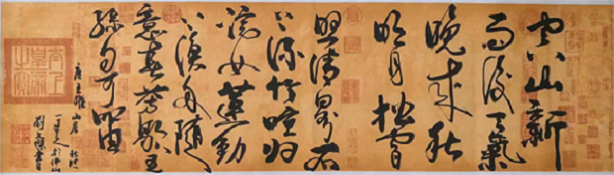 空山新
雨後天氣
晚來秋
明月松間
照清泉石
上流竹喧歸
浣女蓮動
下漁舟隨
意春芳歇王
孫自可留
唐王維山居秋暝